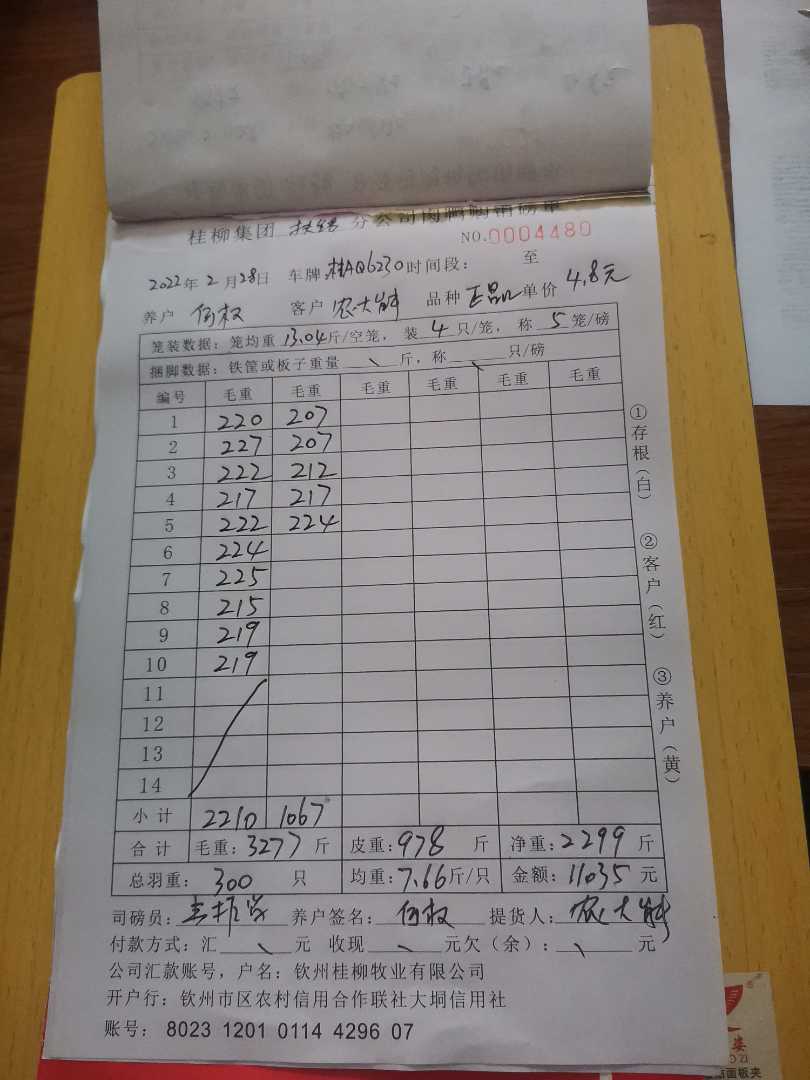 桂柳集团 扶绥 分公司肉鸭购销磅单
NO.0004480
2022年2月28日 车牌 桂AQ6230 时间段： 至
养户 何权 客户 农大能 品种 正品 单价 4.8元
笼装数据：笼均重 13.04 斤/空笼，装 4 只/笼，称 5 笼/磅
捆脚数据：铁筐或板子重量 \ 斤，称 \ 只/磅
编号 毛重 毛重 毛重 毛重 毛重 毛重
1 220 207
2 227 207
3 222 212
4 217 217
5 222 224
6 224
7 225
8 215
9 219
10 219
11
12
13
14
小计 2210 1067
合计 毛重：3277 斤 皮重：978 斤 净重：2299 斤
总羽重： 300 只 均重：7.66 斤/只 金额：11035 元
司磅员： 养户签名： 何权 提货人： 农大能
付款方式：汇 \ 元 收现 \ 元欠（余）： \ 元
公司汇款账号，户名：钦州桂柳牧业有限公司
开户行：钦州市区农村信用合作联社大垌信用社
账号： 8023 1201 0114 4296 07
①存根（白）
②客户（红）
③养户（黄）
面板夹